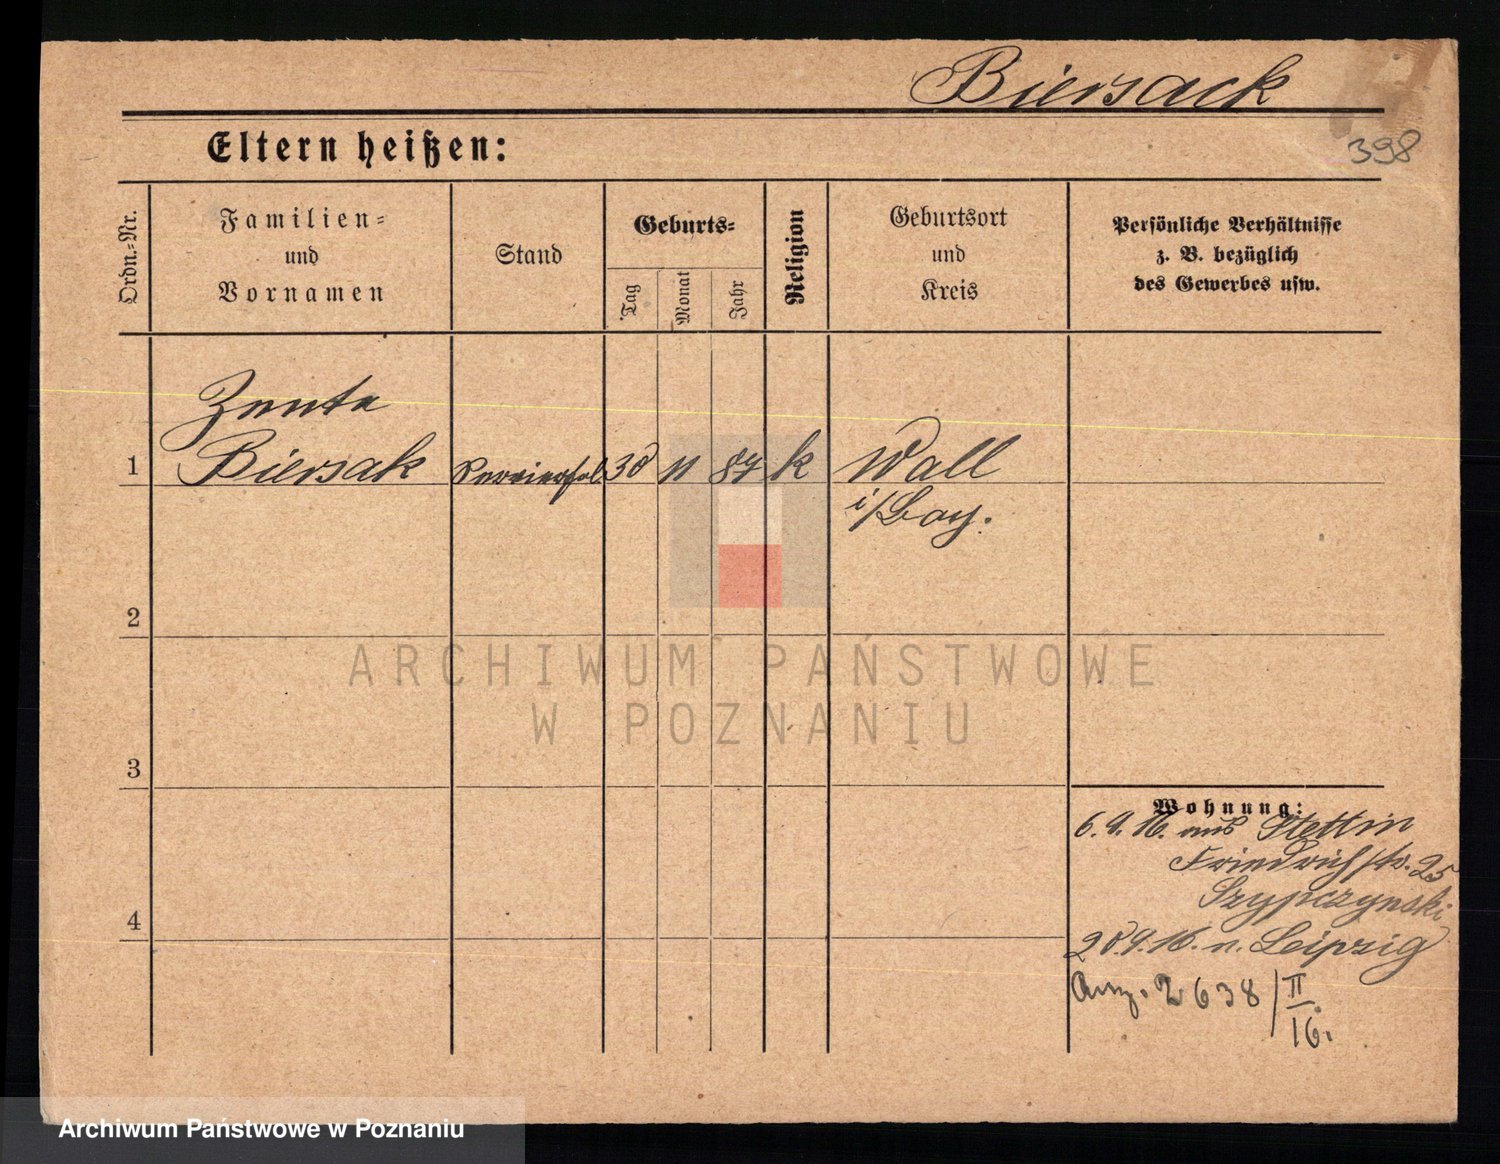 Biersack
398
Eltern heißen:
Ordn.-Nr.
Familien-
und
Vornamen
Stand
Geburts-
Tag
Monat
Jahr
Religion
Geburtsort
und
Kreis
Persönliche Verhältnisse
z. B. bezüglich
des Gewerbes usw.
1
Biersak
30 11 87 k Wall
i/Bay.
2
ARCHIWUM PAŃSTWOWE
W POZNANIU
3
Wohnung:
6.9.16. aus Stettin
Friedrichstr. 25
Szypczynski
4
28.9.16. n. Leipzig
2638/II
16.
Archiwum Państwowe w Poznaniu